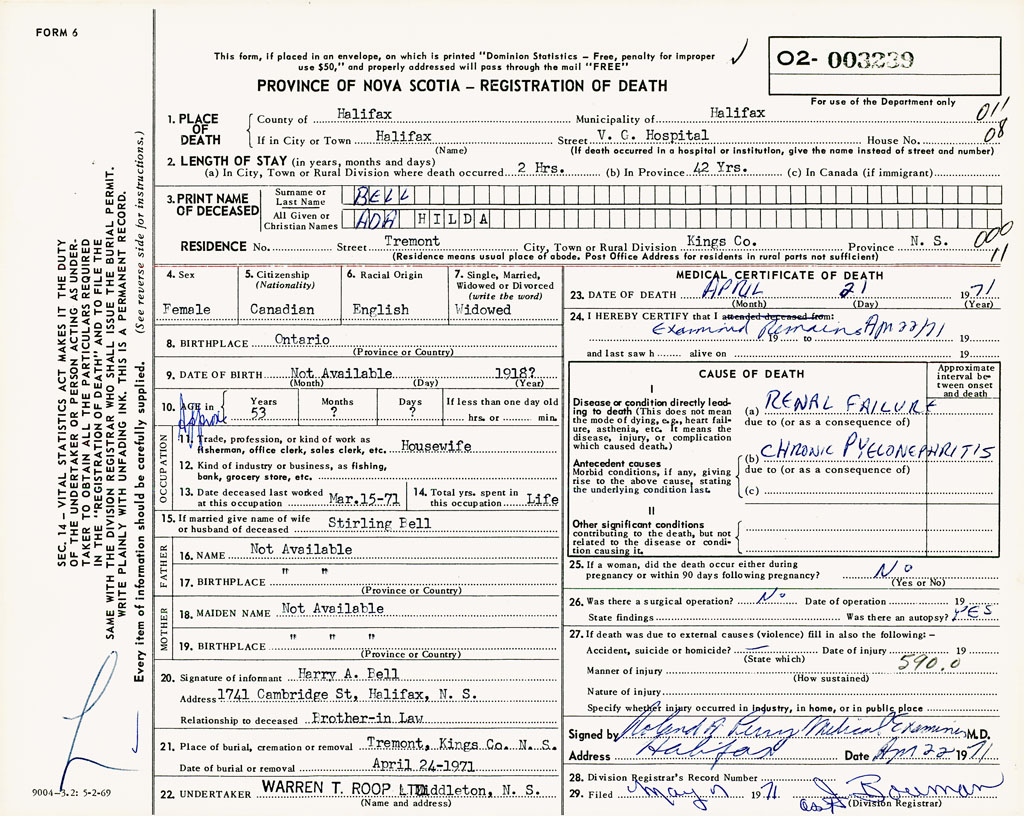 FORM 6
This form, if placed in an envelope, on which is printed "Dominion Statistics – Free, penalty for improper
use $50," and properly addressed will pass through the mail "FREE"
02- 003239
PROVINCE OF NOVA SCOTIA – REGISTRATION OF DEATH
For use of the Department only
1. PLACE OF DEATH
County of Halifax Municipality of Halifax 011
If in City or Town Halifax Street V. G. Hospital House No. 08
(Name) (If death occurred in a hospital or institution, give the name instead of street and number)
2. LENGTH OF STAY (in years, months and days)
(a) In City, Town or Rural Division where death occurred 2 Hrs. (b) In Province 42 Yrs. (c) In Canada (if immigrant)
3. PRINT NAME OF DECEASED
Surname or Last Name BELL
All Given or Christian Names ADA HILDA
RESIDENCE No. Street Tremont City, Town or Rural Division Kings Co. Province N. S. 000
(Residence means usual place of abode. Post Office Address for residents in rural parts not sufficient) 11
4. Sex
Female
5. Citizenship
(Nationality)
Canadian
6. Racial Origin
English
7. Single, Married,
Widowed or Divorced
(write the word)
Widowed
8. BIRTHPLACE Ontario
(Province or Country)
9. DATE OF BIRTH Not Available 1918?
(Month) (Day) (Year)
10. AGE in Approx
Years 53
Months ?
Days ?
If less than one day old
hrs. or min.
OCCUPATION
11. Trade, profession, or kind of work as
fisherman, office clerk, sales clerk, etc. Housewife
12. Kind of industry or business, as fishing,
bank, grocery store, etc.
13. Date deceased last worked
at this occupation Mar.15-71
14. Total yrs. spent in
this occupation Life
15. If married give name of wife
or husband of deceased Stirling Bell
FATHER
16. NAME Not Available
17. BIRTHPLACE " "
(Province or Country)
MOTHER
18. MAIDEN NAME Not Available
19. BIRTHPLACE " " "
(Province or Country)
20. Signature of informant Harry A. Bell
Address 1741 Cambridge St, Halifax, N. S.
Relationship to deceased Brother-in Law
21. Place of burial, cremation or removal Tremont, Kings Co. N. S.
Date of burial or removal April 24-1971
22. UNDERTAKER WARREN T. ROOP LTD Middleton, N. S.
(Name and address)
MEDICAL CERTIFICATE OF DEATH
23. DATE OF DEATH APRIL 21 1971
(Month) (Day) (Year)
24. I HEREBY CERTIFY that I attended deceased from:
Examined Remains Apr 22/71
19 to 19
and last saw h alive on 19
CAUSE OF DEATH
Approximate
interval be-
tween onset
and death
I
Disease or condition directly lead-
ing to death (This does not mean
the mode of dying, e.g., heart fail-
ure, asthenia, etc. It means the
disease, injury, or complication
which caused death.)
(a) RENAL FAILURE
due to (or as a consequence of)
Antecedent causes
Morbid conditions, if any, giving
rise to the above cause, stating
the underlying condition last.
(b) CHRONIC PYELONEPHRITIS
due to (or as a consequence of)
(c)
II
Other significant conditions
contributing to the death, but not
related to the disease or condi-
tion causing it.
25. If a woman, did the death occur either during
pregnancy or within 90 days following pregnancy? No
(Yes or No)
26. Was there a surgical operation? No Date of operation 19
State findings Was there an autopsy? YES
27. If death was due to external causes (violence) fill in also the following: –
Accident, suicide or homicide? — Date of injury 19
(State which) 590.0
Manner of injury
(How sustained)
Nature of injury
Specify whether injury occurred in industry, in home, or in public place
Signed by Roland A Perry Medical Examiner M.D.
Address Halifax Date Apr 22 1971
28. Division Registrar's Record Number
29. Filed May 1971 J. Bowman
(Division Registrar)
SEC. 14 – VITAL STATISTICS ACT MAKES IT THE DUTY
OF THE UNDERTAKER OR PERSON ACTING AS UNDER-
TAKER TO OBTAIN ALL THE PARTICULARS REQUIRED
IN THE "REGISTRATION OF DEATH" AND TO FILE THE
SAME WITH THE DIVISION REGISTRAR WHO SHALL ISSUE THE BURIAL PERMIT.
WRITE PLAINLY WITH UNFADING INK. THIS IS A PERMANENT RECORD.
Every item of information should be carefully supplied. (See reverse side for instructions.)
9004-3.2: 5-2-69